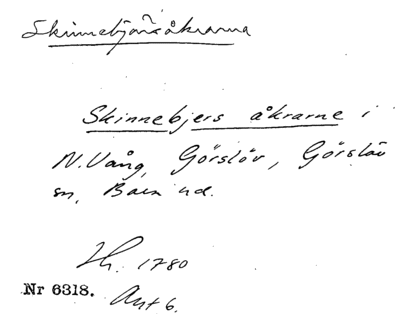 Skinnebjersåkrarna
Skinnebjers åkrarne i
N. Vång, Görslöv, Görslöv
sn, Bara hd.
Lh. 1780
Nr 6318. Akt 6.